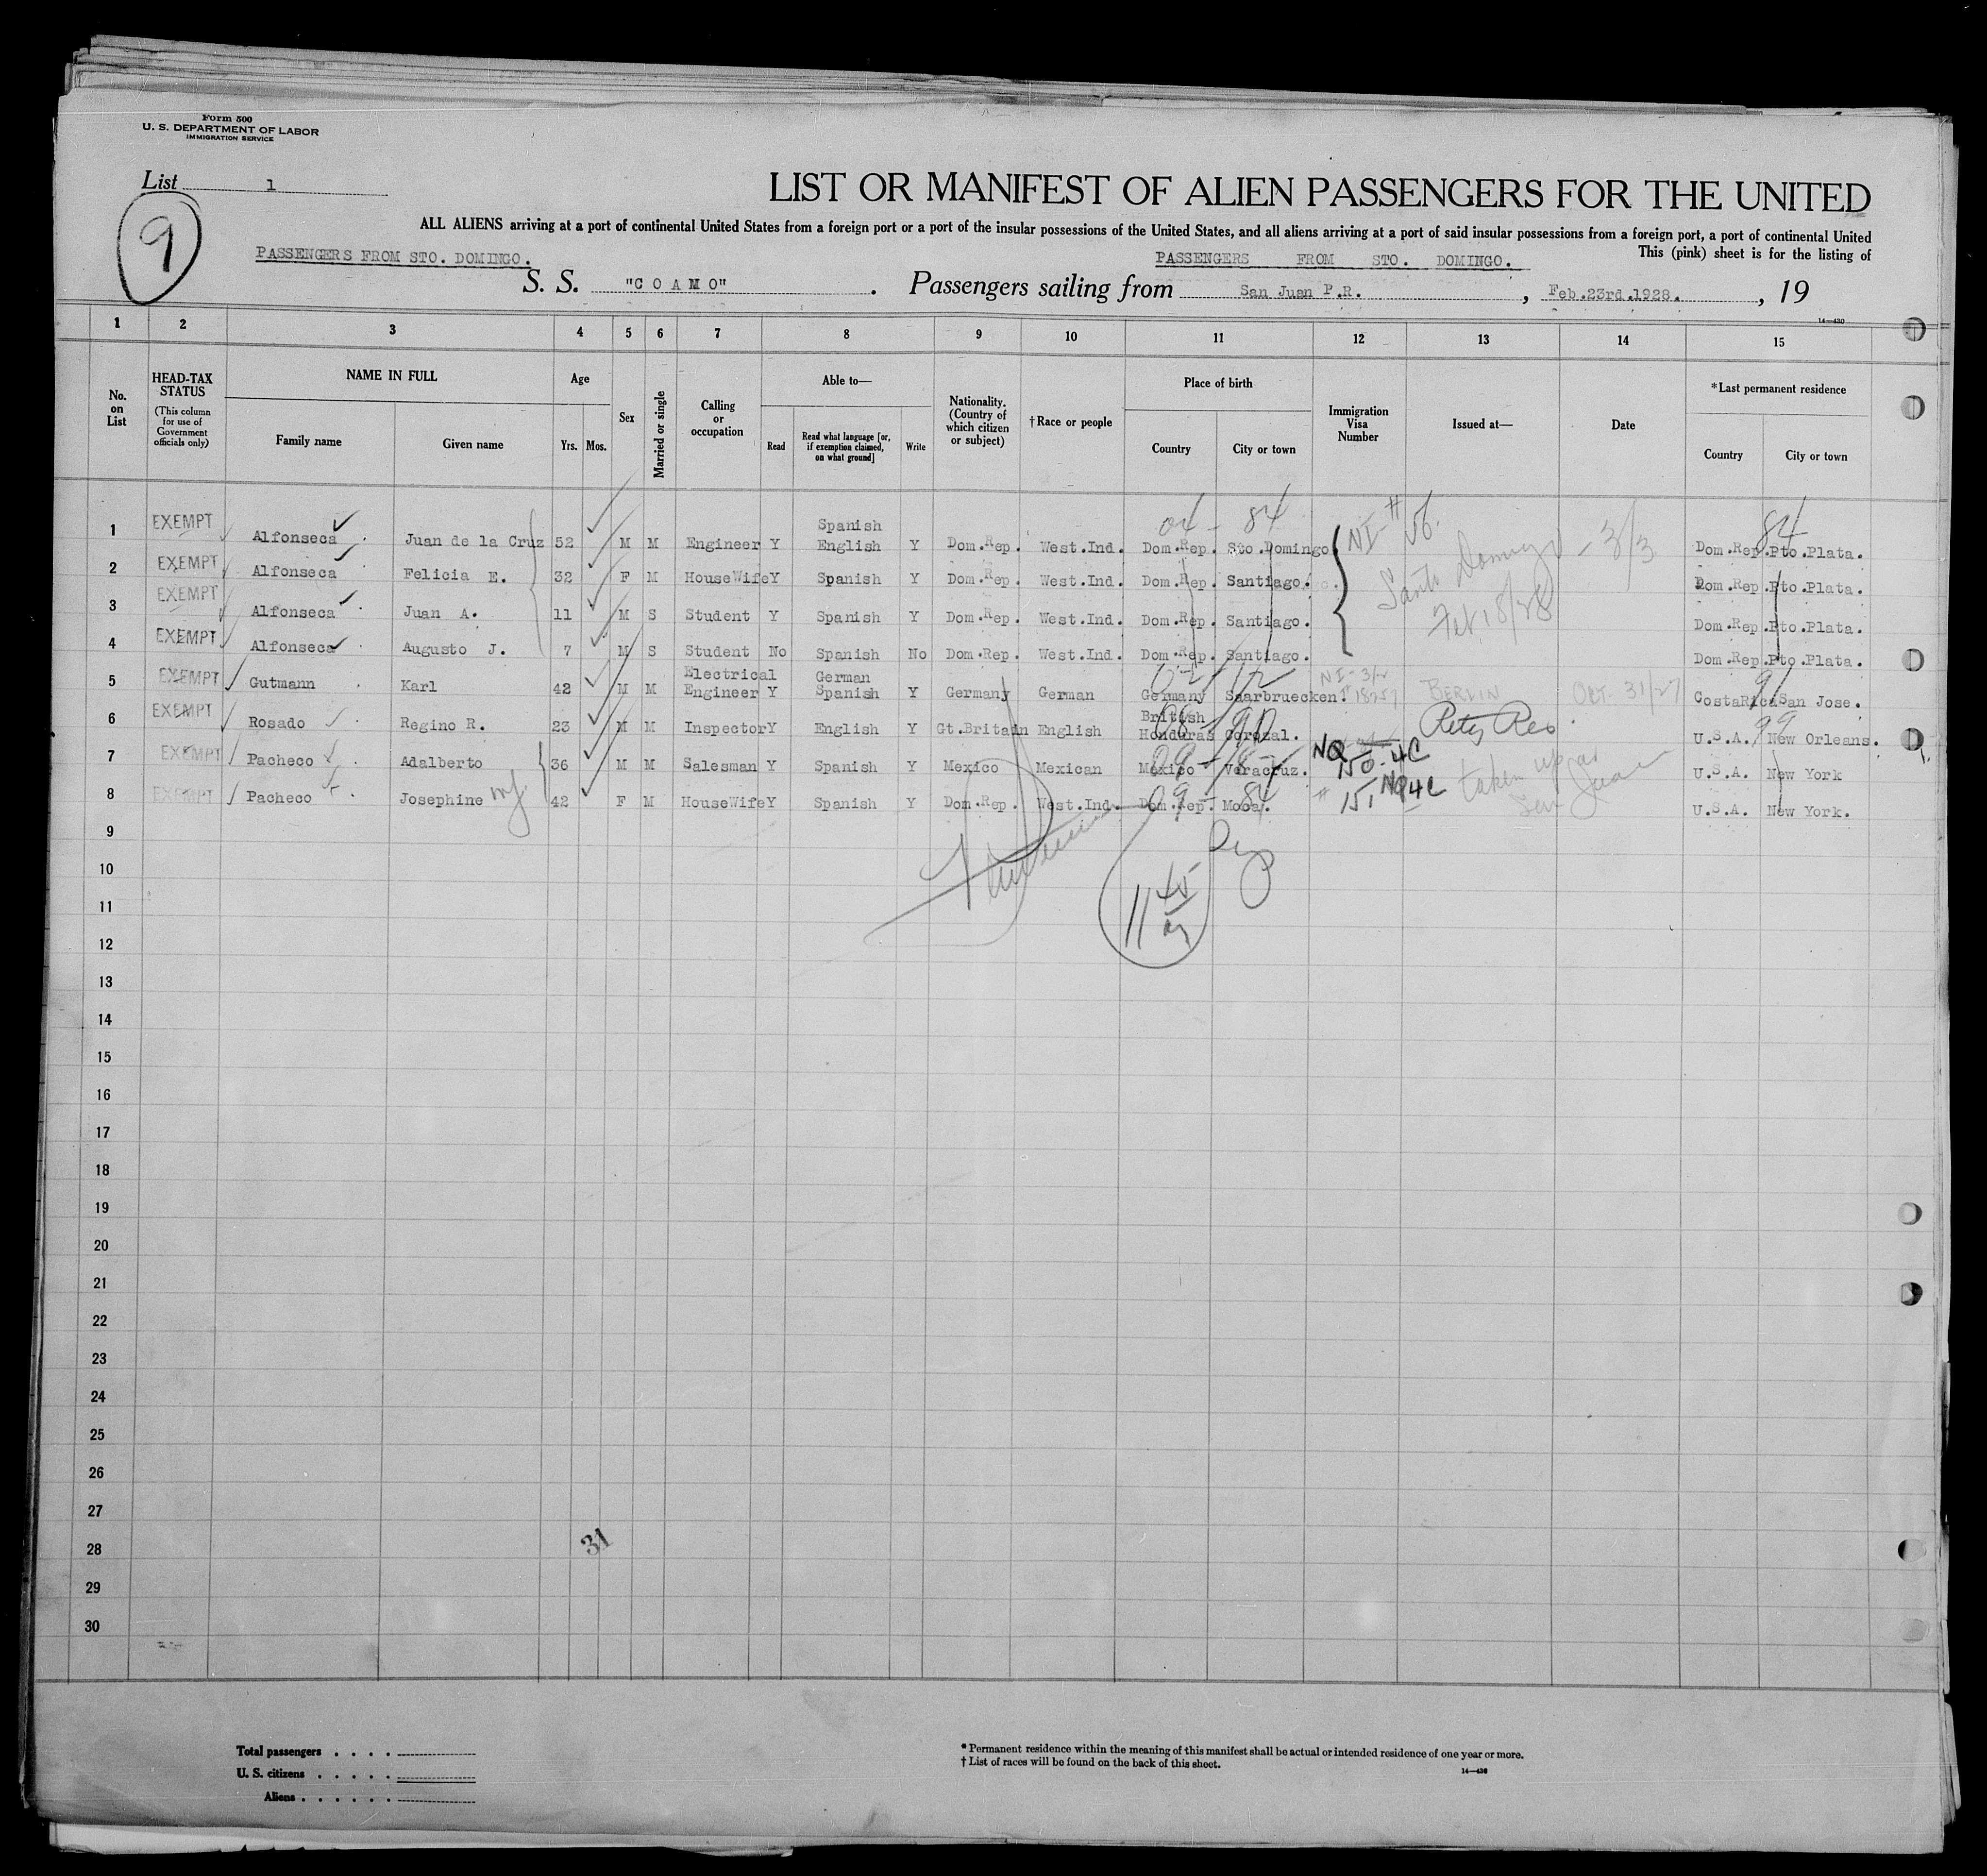 Form 500
U. S. DEPARTMENT OF LABOR
IMMIGRATION SERVICE
List 1
9
LIST OR MANIFEST OF ALIEN PASSENGERS FOR THE UNITED
ALL ALIENS arriving at a port of continental United States from a foreign port or a port of the insular possessions of the United States, and all aliens arriving at a port of said insular possessions from a foreign port, a port of continental United
PASSENGERS FROM STO. DOMINGO. PASSENGERS FROM STO. DOMINGO. This (pink) sheet is for the listing of
S. S. "COAMO" . Passengers sailing from San Juan P.R. , Feb.23rd.1928. , 19
14—430
1 2 3 4 5 6 7 8 9 10 11 12 13 14 15
No. on List
HEAD-TAX STATUS
(This column for use of Government officials only)
NAME IN FULL
Family name Given name
Age
Yrs. Mos.
Sex
Married or single
Calling or occupation
Able to—
Read Read what language [or, if exemption claimed, on what ground] Write
Nationality. (Country of which citizen or subject)
†Race or people
Place of birth
Country City or town
Immigration Visa Number
Issued at—
Date
*Last permanent residence
Country City or town
04 - 84 84
1 EXEMPT Alfonseca Juan de la Cruz 52 M M Engineer Y Spanish English Y Dom.Rep. West.Ind. Dom.Rep. Sto.Domingo NI-# Dom.Rep.Pto.Plata.
2 EXEMPT Alfonseca Felicia E. 32 F M HouseWife Y Spanish Y Dom.Rep. West.Ind. Dom.Rep. Santiago. Santo Domingo - 3/3 Dom.Rep.Pto.Plata.
3 EXEMPT Alfonseca Juan A. 11 M S Student Y Spanish Y Dom.Rep. West.Ind. Dom.Rep. Santiago. Feb 18/28 Dom.Rep.Pto.Plata.
4 EXEMPT Alfonseca Augusto J. 7 M S Student No Spanish No Dom.Rep. West.Ind. Dom.Rep. Santiago. Dom.Rep.Pto.Plata.
5 EXEMPT Gutmann Karl 42 M M Electrical Engineer Y German Spanish Y Germany German Germany Saarbruecken. NI-3/2 BERLIN OCT. 31/27 CostaRica San Jose.
6 EXEMPT Rosado Regino R. 23 M M Inspector Y English Y Gt.Britain English British Honduras Corozal. U.S.A. New Orleans.
7 EXEMPT Pacheco Adalberto 36 M M Salesman Y Spanish Y Mexico Mexican Mexico Veracruz. NQ 150-4C taken up at U.S.A. New York
8 EXEMPT Pacheco Josephine 42 F M HouseWife Y Spanish Y Dom.Rep. West.Ind. Dom.Rep. Moca. # 151 NQ4C San Juan U.S.A. New York.
9
10
11
12
13
14
15
16
17
18
19
20
21
22
23
24
25
26
27
28
29
30
31
Total passengers
U. S. citizens
Aliens
* Permanent residence within the meaning of this manifest shall be actual or intended residence of one year or more.
† List of races will be found on the back of this sheet.
14—430